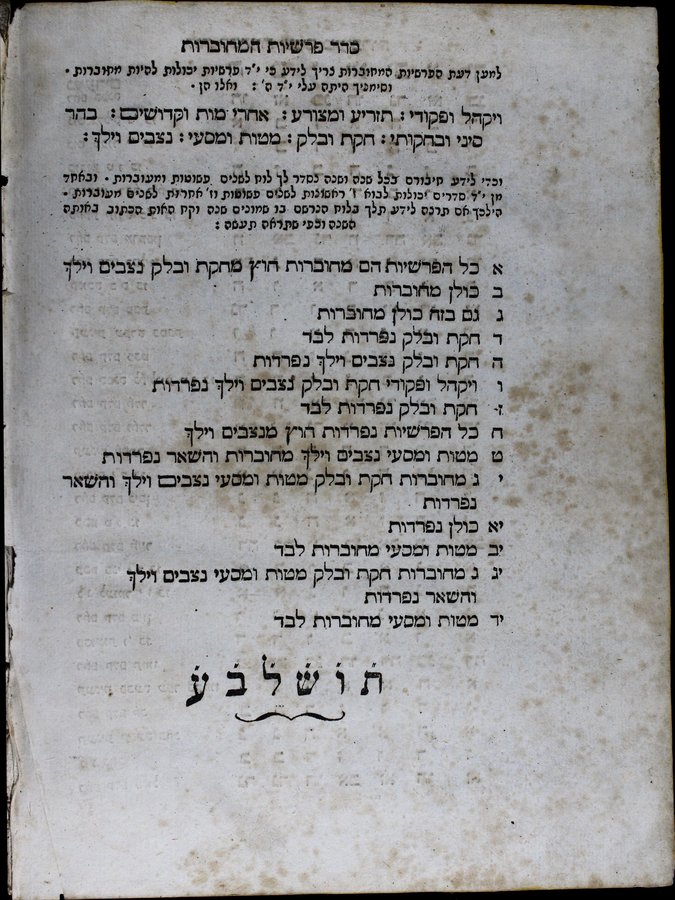 סדר פרשיות המחוברות
למען דעת הפרשיות המחוברות צריך לידע כי י"ד פרשיות יכולות להיות מחוברות ·
וסימניך היתה עלי י"ד ה' : ואלו הן ·
ויקהל ופקודי : תזריע ומצורע : אחרי מות וקדושים : בהר
סיני ובחקותי : חקת ובלק : מטות ומסעי : נצבים וילך :
וכדי לידע חיבורם בכל שנה ושנה נסדר לך לוח לשנים פשוטות ומעוברות · ובאחד
מן י"ד סדרים יכולות לבוא ז' ראשונות לשנים פשוטות וז' אחרות לשנים מעוברות ·
הילכך אם תרצה לידע תלך בלוח הנרשם בו שמונים שנה וקח האות הכתוב באותה
השנה וכפי שתראה תעשה :
א כל הפרשיות הם מחוברות חוץ מחקת ובלק נצבים וילך
ב כולן מחוברות
ג גם בזה כולן מחוברות
ד חקת ובלק נפרדות לבד
ה חקת ובלק נצבים וילך נפרדות
ו ויקהל ופקודי חקת ובלק נצבים וילך נפרדות
ז חקת ובלק נפרדות לבד
ח כל הפרשיות נפרדות חוץ מנצבים וילך
ט מטות ומסעי נצבים וילך מחוברות והשאר נפרדות
י ג מחוברות חקת ובלק מטות ומסעי נצבים וילך והשאר
נפרדות
יא כולן נפרדות
יב מטות ומסעי מחוברות לבד
יג ג מחוברות חקת ובלק מטות ומסעי נצבים וילך
והשאר נפרדות
יד מטות ומסעי מחוברות לבד
תושלבע